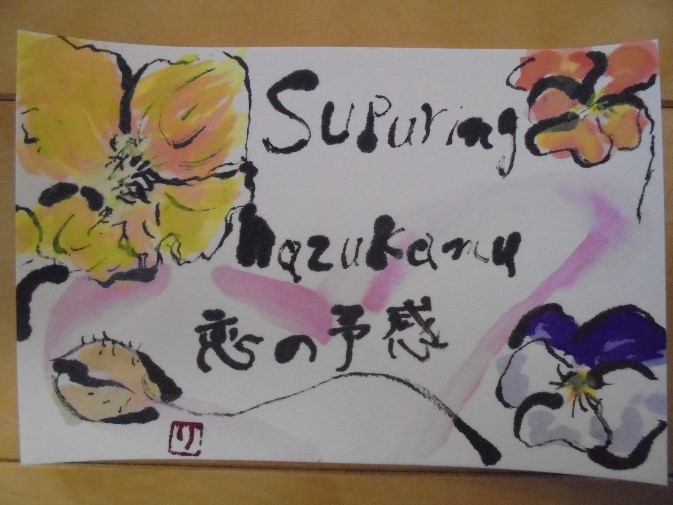 SUPuring
hazukamu
恋の予感
リ